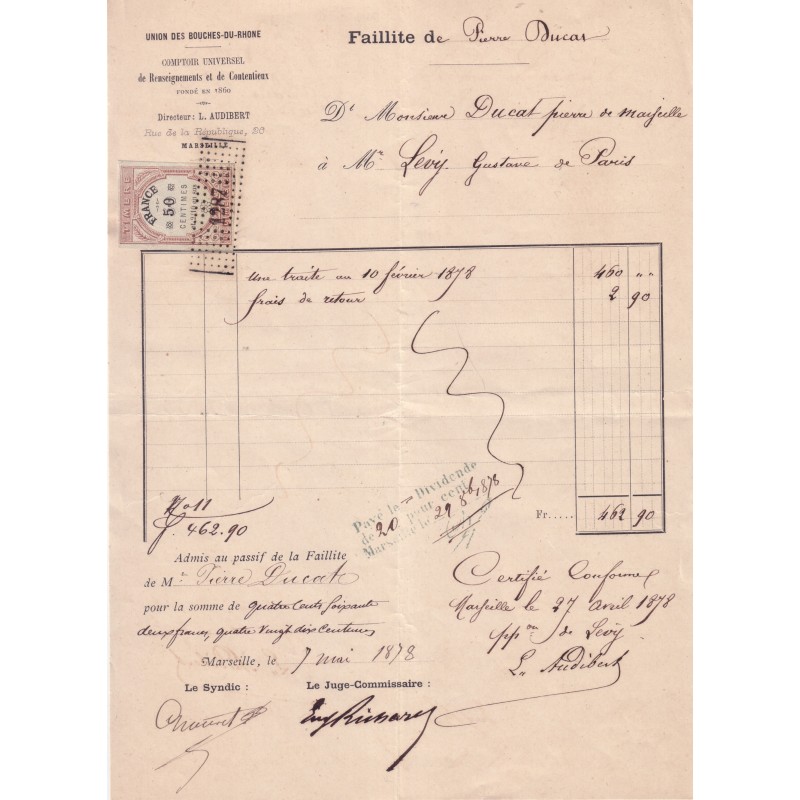 UNION DES BOUCHES-DU-RHONE
COMPTOIR UNIVERSEL
de Renseignements et de Contentieux
FONDÉ EN 1860
Directeur: L. AUDIBERT
Rue de la République, 90
MARSEILLE
Faillite de Pierre Ducat
Dt Monsieur Ducat pierre de marseille
à Mr Levÿ Gustave de Paris
TIMBRE
FRANCE
50
CENTIMES
1287
une traite au 10 février 1878 460 " "
frais de retour 2 90
No 11
f. 462.90
Payé le Dividende
de 20 pour cent
Marseille le 29 8b 1878
Fr..... 462 90
Admis au passif de la Faillite
de Mr Pierre Ducat
pour la somme de quatre cents soixante
deux francs, quatre vingt dix centimes
Marseille, le 7 mai 1878
Le Syndic :
Le Juge-Commissaire :
Certifié Conforme
Marseille le 27 avril 1878
ppon de Levÿ
L. Audibert